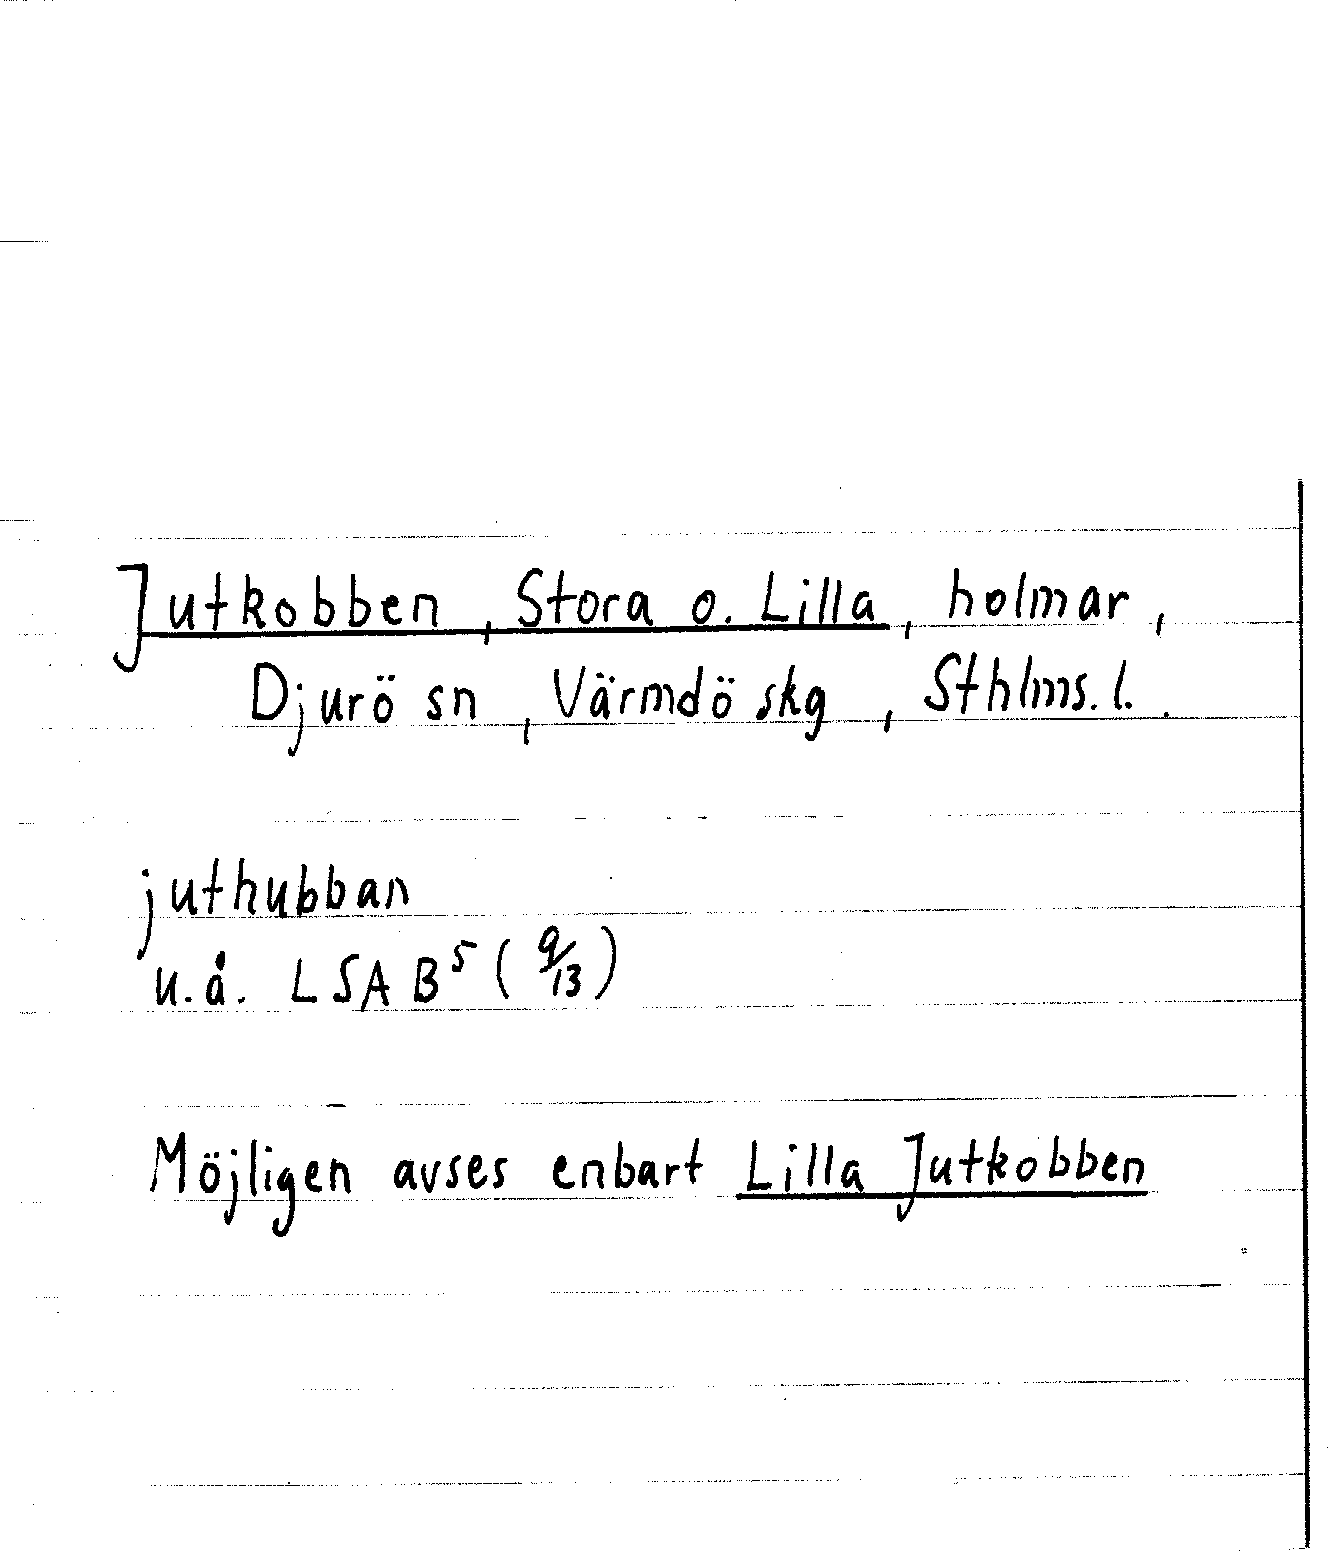 Jutkobben, Stora o. Lilla, holmar,
Djurö sn, Värmdö skg, Sthlms. l.
juthubban
u.å. LSA B⁵ (9/13)
Möjligen avses enbart Lilla Jutkobben